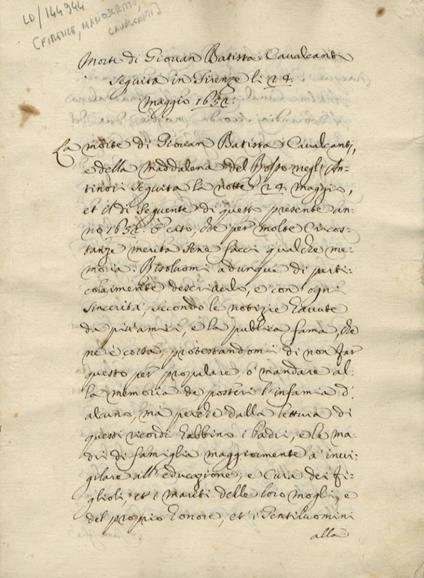 LD/144944
(FIRENZE, MANOSCRITTO,
CAVALCANTI)
Morte di Giovan Batista Cavalcanti
seguita in Firenze li 24
Maggio 1652:
La morte di Giovan Batista Cavalcanti,
e della Maddalena del Rosso negl'An-
tinori seguita la notte 24 Maggio,
et il dì seguente di questo presente an-
no 1652. è caso, che per molte circos-
tanze merita sene facci qualche me-
moria: Risoluomi adunque di parti-
colarmente descriverlo, e con ogni
sincerità, secondo le notizie havute
da più amici, e la publica fama, che
ne è corsa, protestandomi di non far
questo per propalare, o mandare al-
la memoria de posteri l'infamia d'
alcuno, ma perche dalla lettura di
questi ricordi habbino i Padri, e le ma-
dri di famiglia maggiormente a' invi-
gilare all'educazione, e cura dei fi-
glioli, et i mariti delle loro mogli, e
del proprio honore, et i Gentiluomini
alla